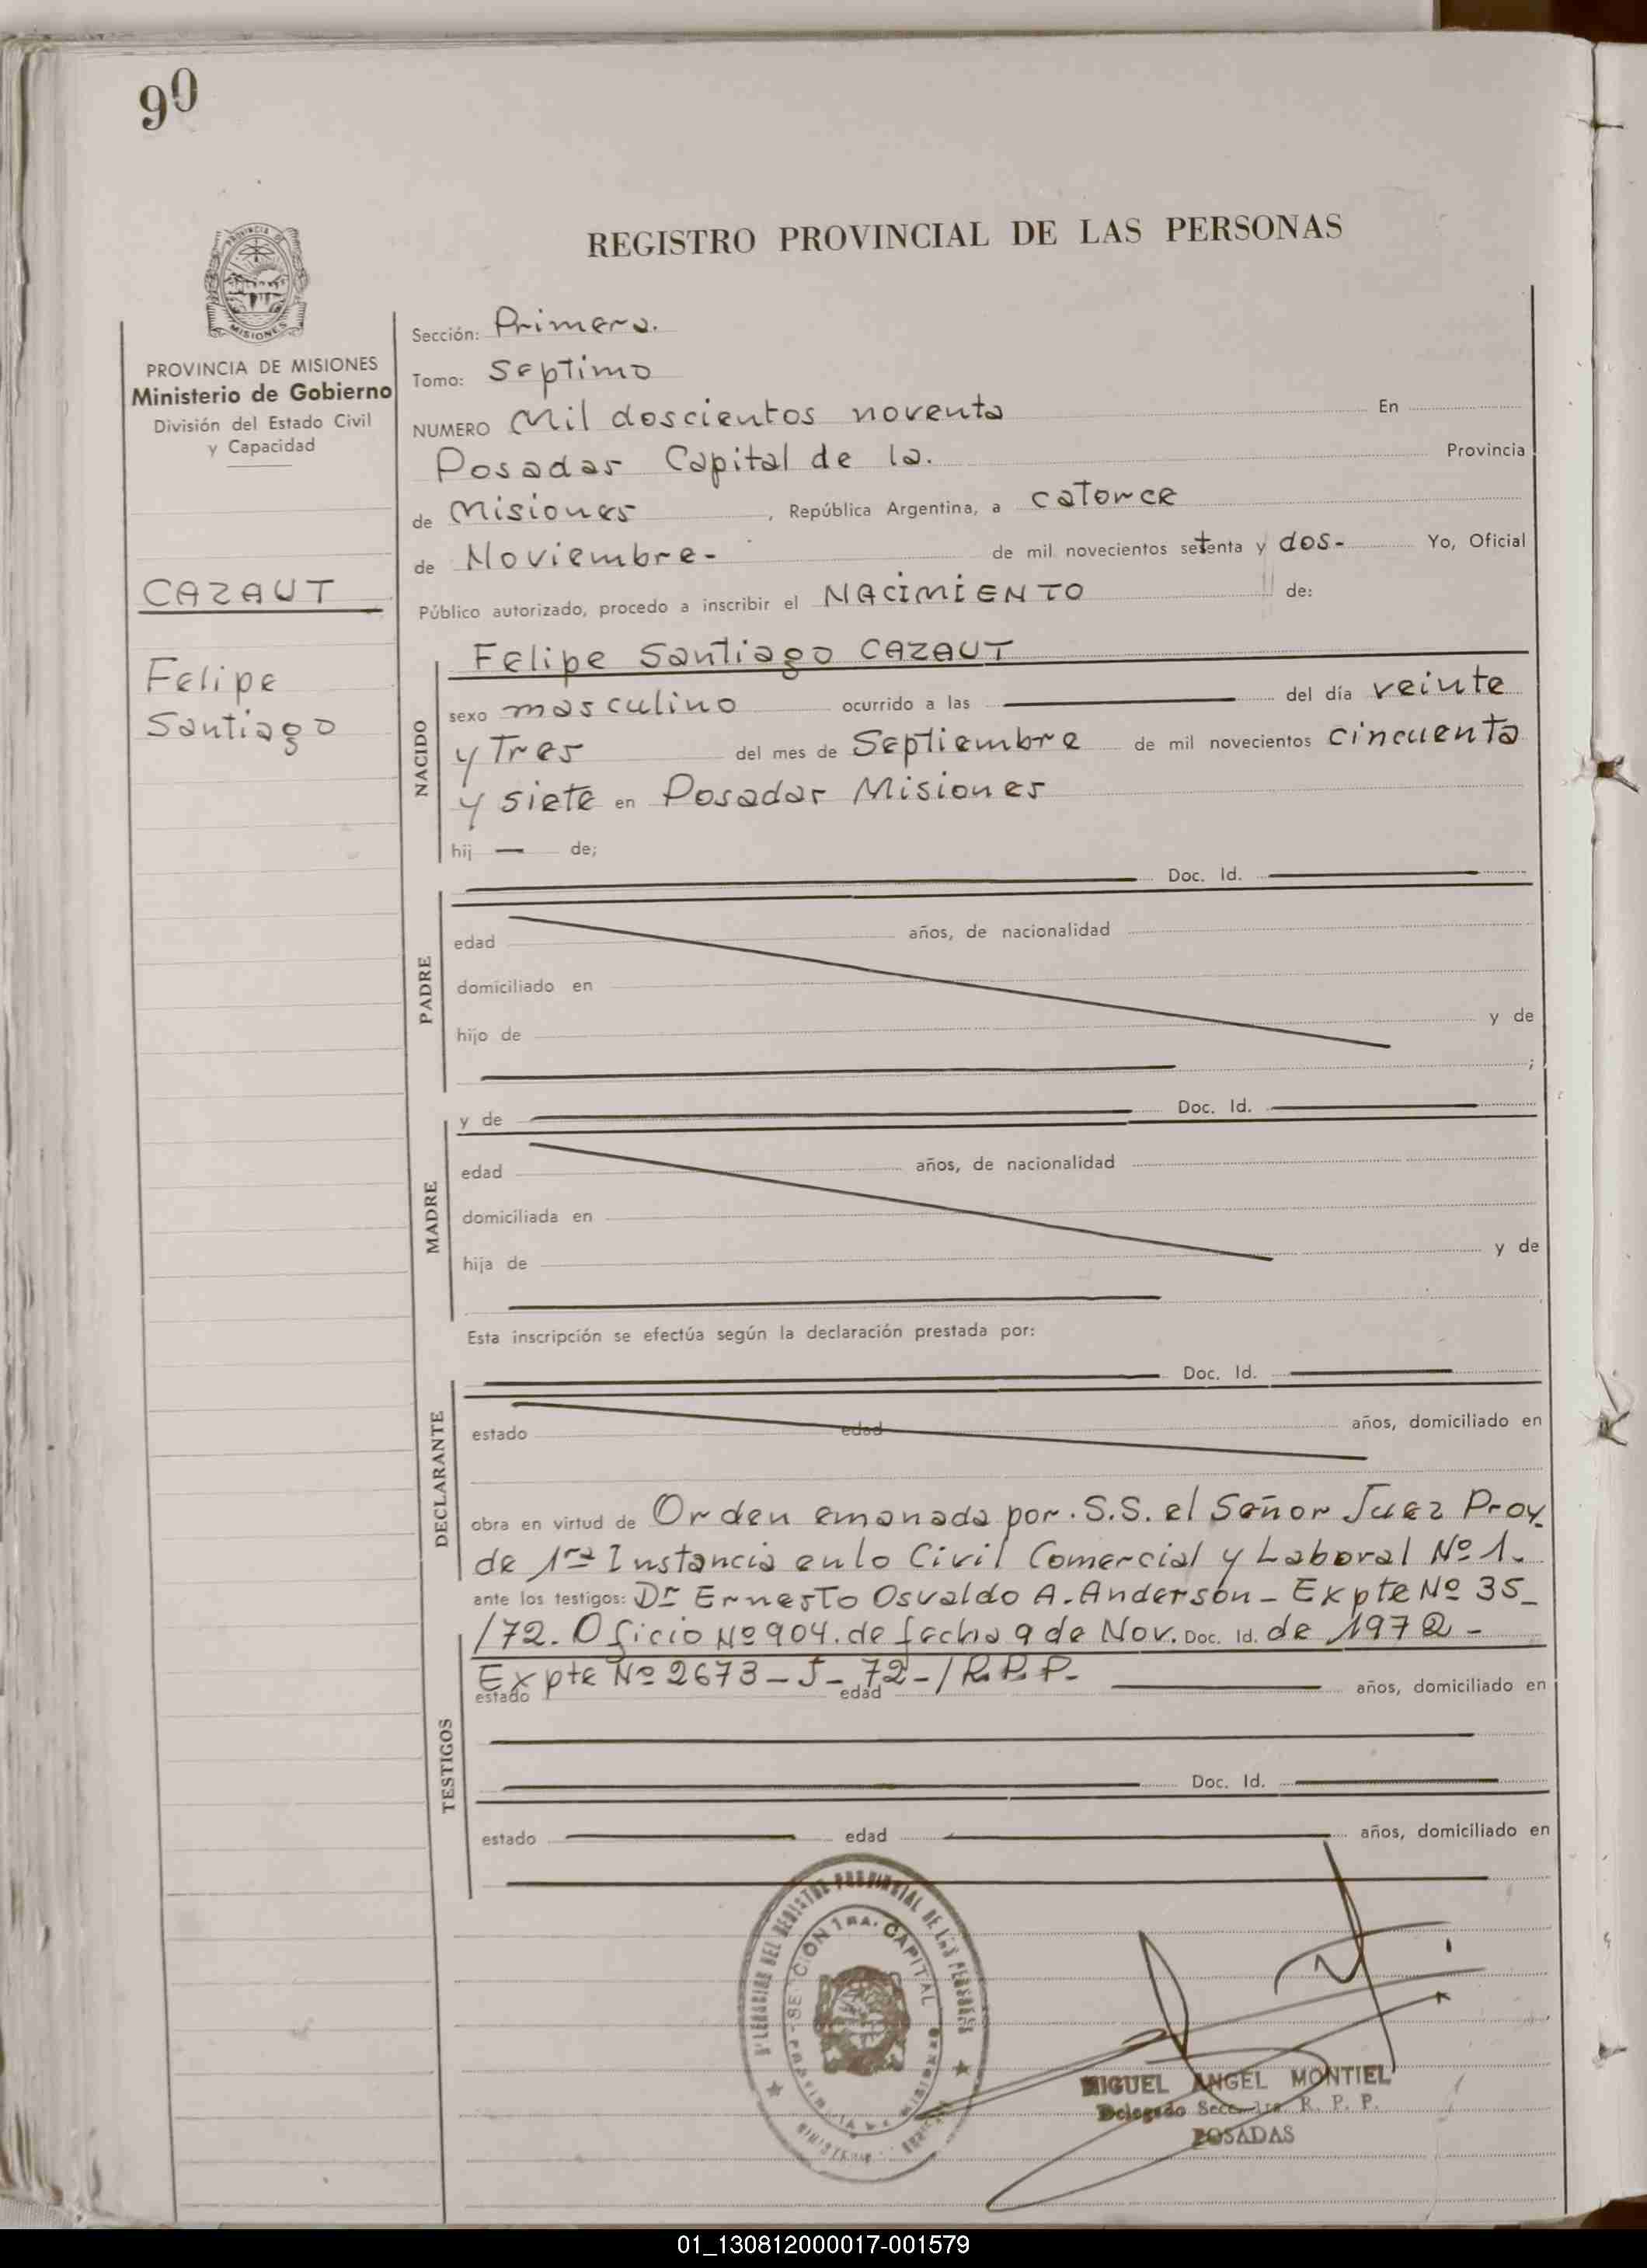 90
REGISTRO PROVINCIAL DE LAS PERSONAS
MISIONES
PROVINCIA DE MISIONES
Ministerio de Gobierno
División del Estado Civil
y Capacidad
CAZAUT
Felipe
Santiago
Sección: Primera.
Tomo: Septimo
NUMERO Mil doscientos noventa En
Posadas Capital de la. Provincia
de Misiones, República Argentina, a catorce
de Noviembre- de mil novecientos setenta y dos- Yo, Oficial
Público autorizado, procedo a inscribir el NACIMIENTO de:
NACIDO
Felipe Santiago CAZAUT
sexo masculino ocurrido a las del día veinte
y Tres del mes de Septiembre de mil novecientos cincuenta
y siete en Posadas Misiones
hij — de;
Doc. Id.
PADRE
edad años, de nacionalidad
domiciliado en
hijo de y de
;
y de Doc. Id.
MADRE
edad años, de nacionalidad
domiciliada en
hija de y de
Esta inscripción se efectúa según la declaración prestada por:
Doc. Id.
DECLARANTE
estado edad años, domiciliado en
obra en virtud de Orden emanada por. S.S. el Señor Juez Prov.
de 1ra Instancia en lo Civil Comercial y Laboral Nº 1.
ante los testigos: Dr Ernesto Osvaldo A. Anderson - Expte Nº 35_
/72. Oficio Nº 904. de fecha 9 de Nov. Doc. Id. de 1972 -
Expte Nº 2673 - J - 72 - / R.P.P.-
estado edad años, domiciliado en
TESTIGOS
Doc. Id.
estado edad años, domiciliado en
DEL REGISTRO PROVINCIAL DE LAS PERSONAS
SECCION 1RA. CAPITAL
MIGUEL ANGEL MONTIEL
Delegado R. P. P.
POSADAS
01_130812000017-001579